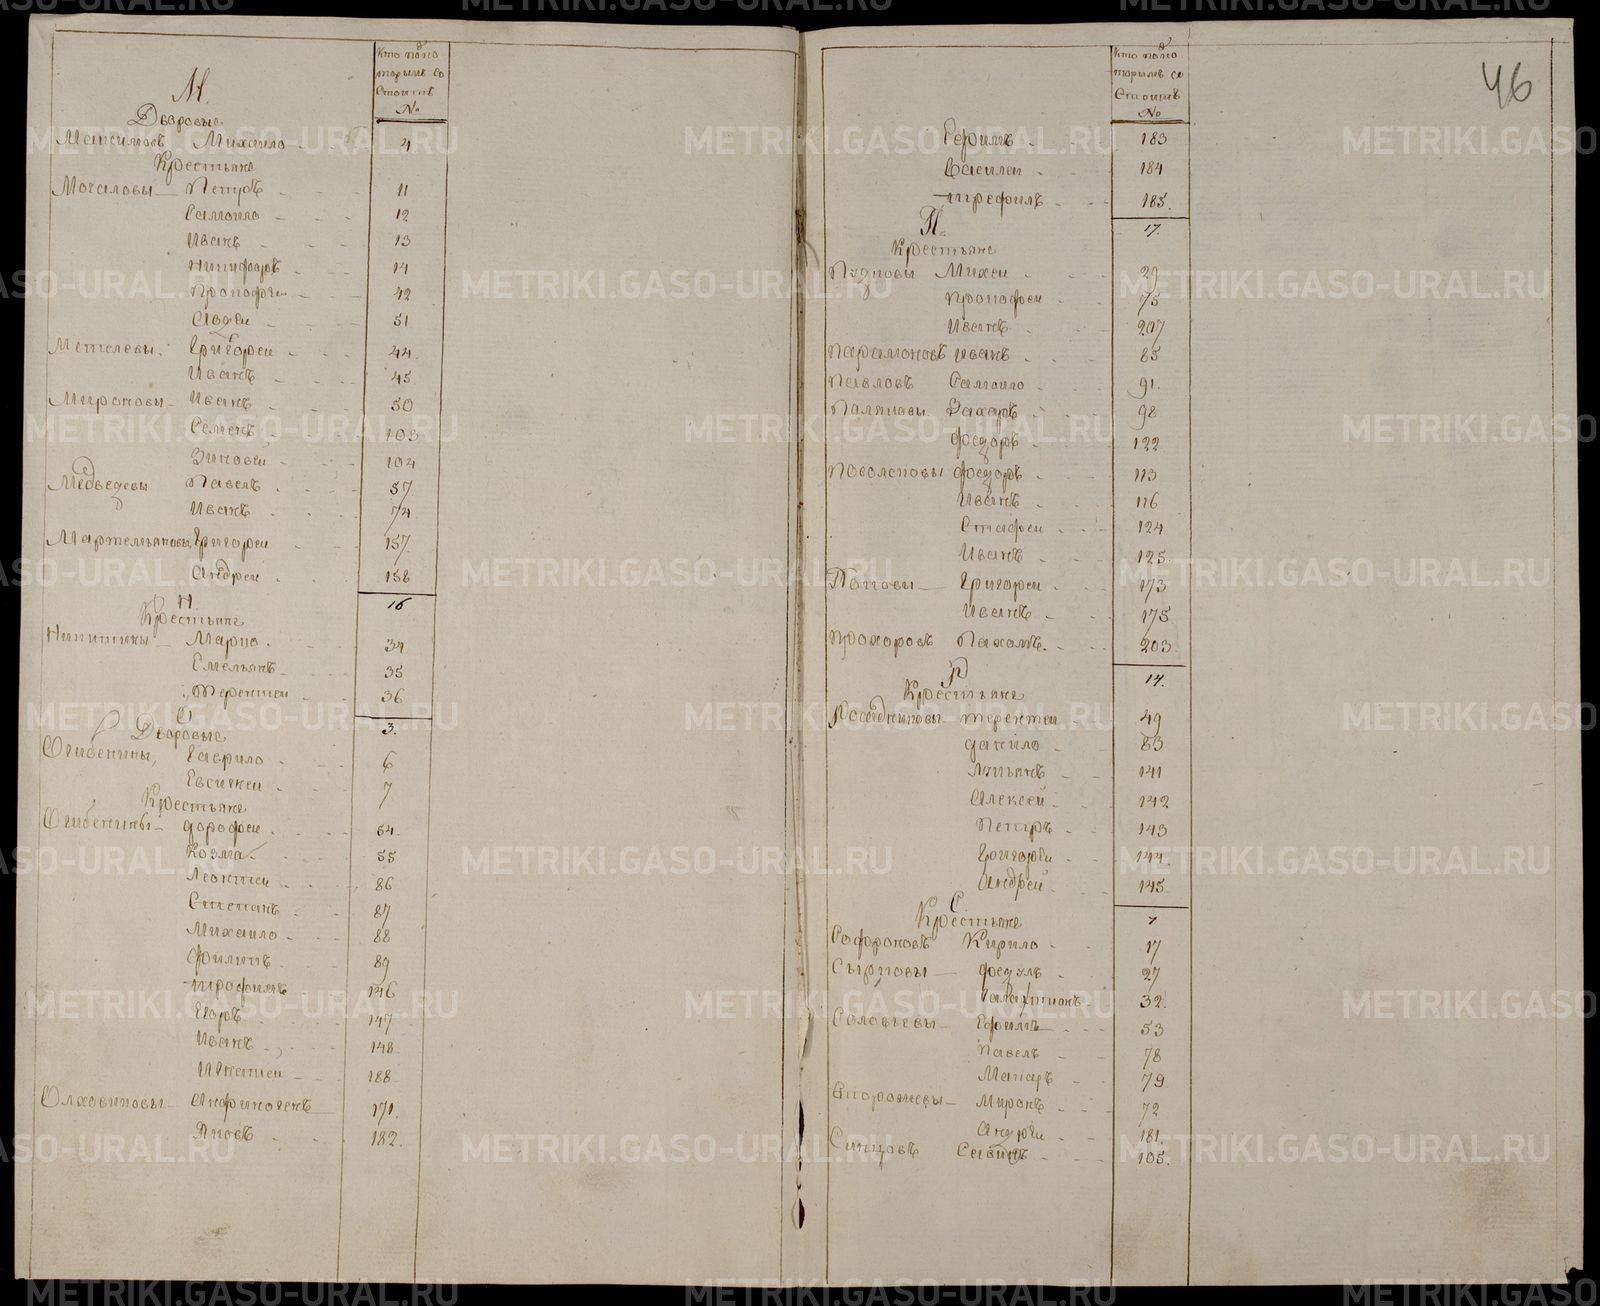 Кто подко
торымъ со
Стоитъ
№
М.
Дворовые
Максимовъ Михаило 4
Крестьяне
Мочаловы Петръ 11
Самоило 12
Иванъ 13
Никифоръ 14
Прокофеи 42
Авдеи 51
Метелевы Григореи 44.
Иванъ 45
Мироновы Иванъ 50
Семенъ 103
Зиновеи 104
Медведевы Павелъ 57
Иванъ 74
Мартемьяновы Григореи 157
Андреи 158
16
Н
Крестьяне
Никитины Марко 34
Емельянъ 35
Терентеи 36
3.
О
Дворовые
Огибенины, Гаврило 6
Евсигнеи 7
Крестьяне
Огибенины дорофеи 54.
Козма 55
Леонтеи 86
Степанъ 87
Михаило 88
Филипъ 89
трофимъ 146
Егоръ 147
Иванъ 148
Игнатеи 188
Олховиковы Анфиногенъ 171.
Яковъ 182.
46
Кто подко
торымъ со
Стоитъ
№
Ефимъ 183
Василеи 184
трефилъ 185.
17.
П
Крестьяне
Пудковы Михеи 29
Прокофеи 75
Иванъ 207
Парамоновъ иванъ 85
Павловъ Самоило 91.
Палкиновы Захаръ 98
Федоръ 122
Поволоковы Федоръ 113
Иванъ 116
Стафеи 124
Иванъ 125.
Поповы Григореи 173
Иванъ 175
Прохоровъ Пахомъ. 203
14.
Р
Крестьяне
Росадниковы терентеи 49
данило 83
Лукьянъ 141
Алексеи 142
Петръ 143
Григореи 144.
Андреи 145.
7
С
Крестьяне
Софроновъ Кирило 17
Сырковы Федулъ 27
Галахтионъ 32.
Соловьевы Ефимъ 53
Павелъ 78
Макаръ 79
Сторожевы Миронъ 72
Андреи 181.
Синцовъ Савинъ 105.
METRIKI.GASO-URAL.RU